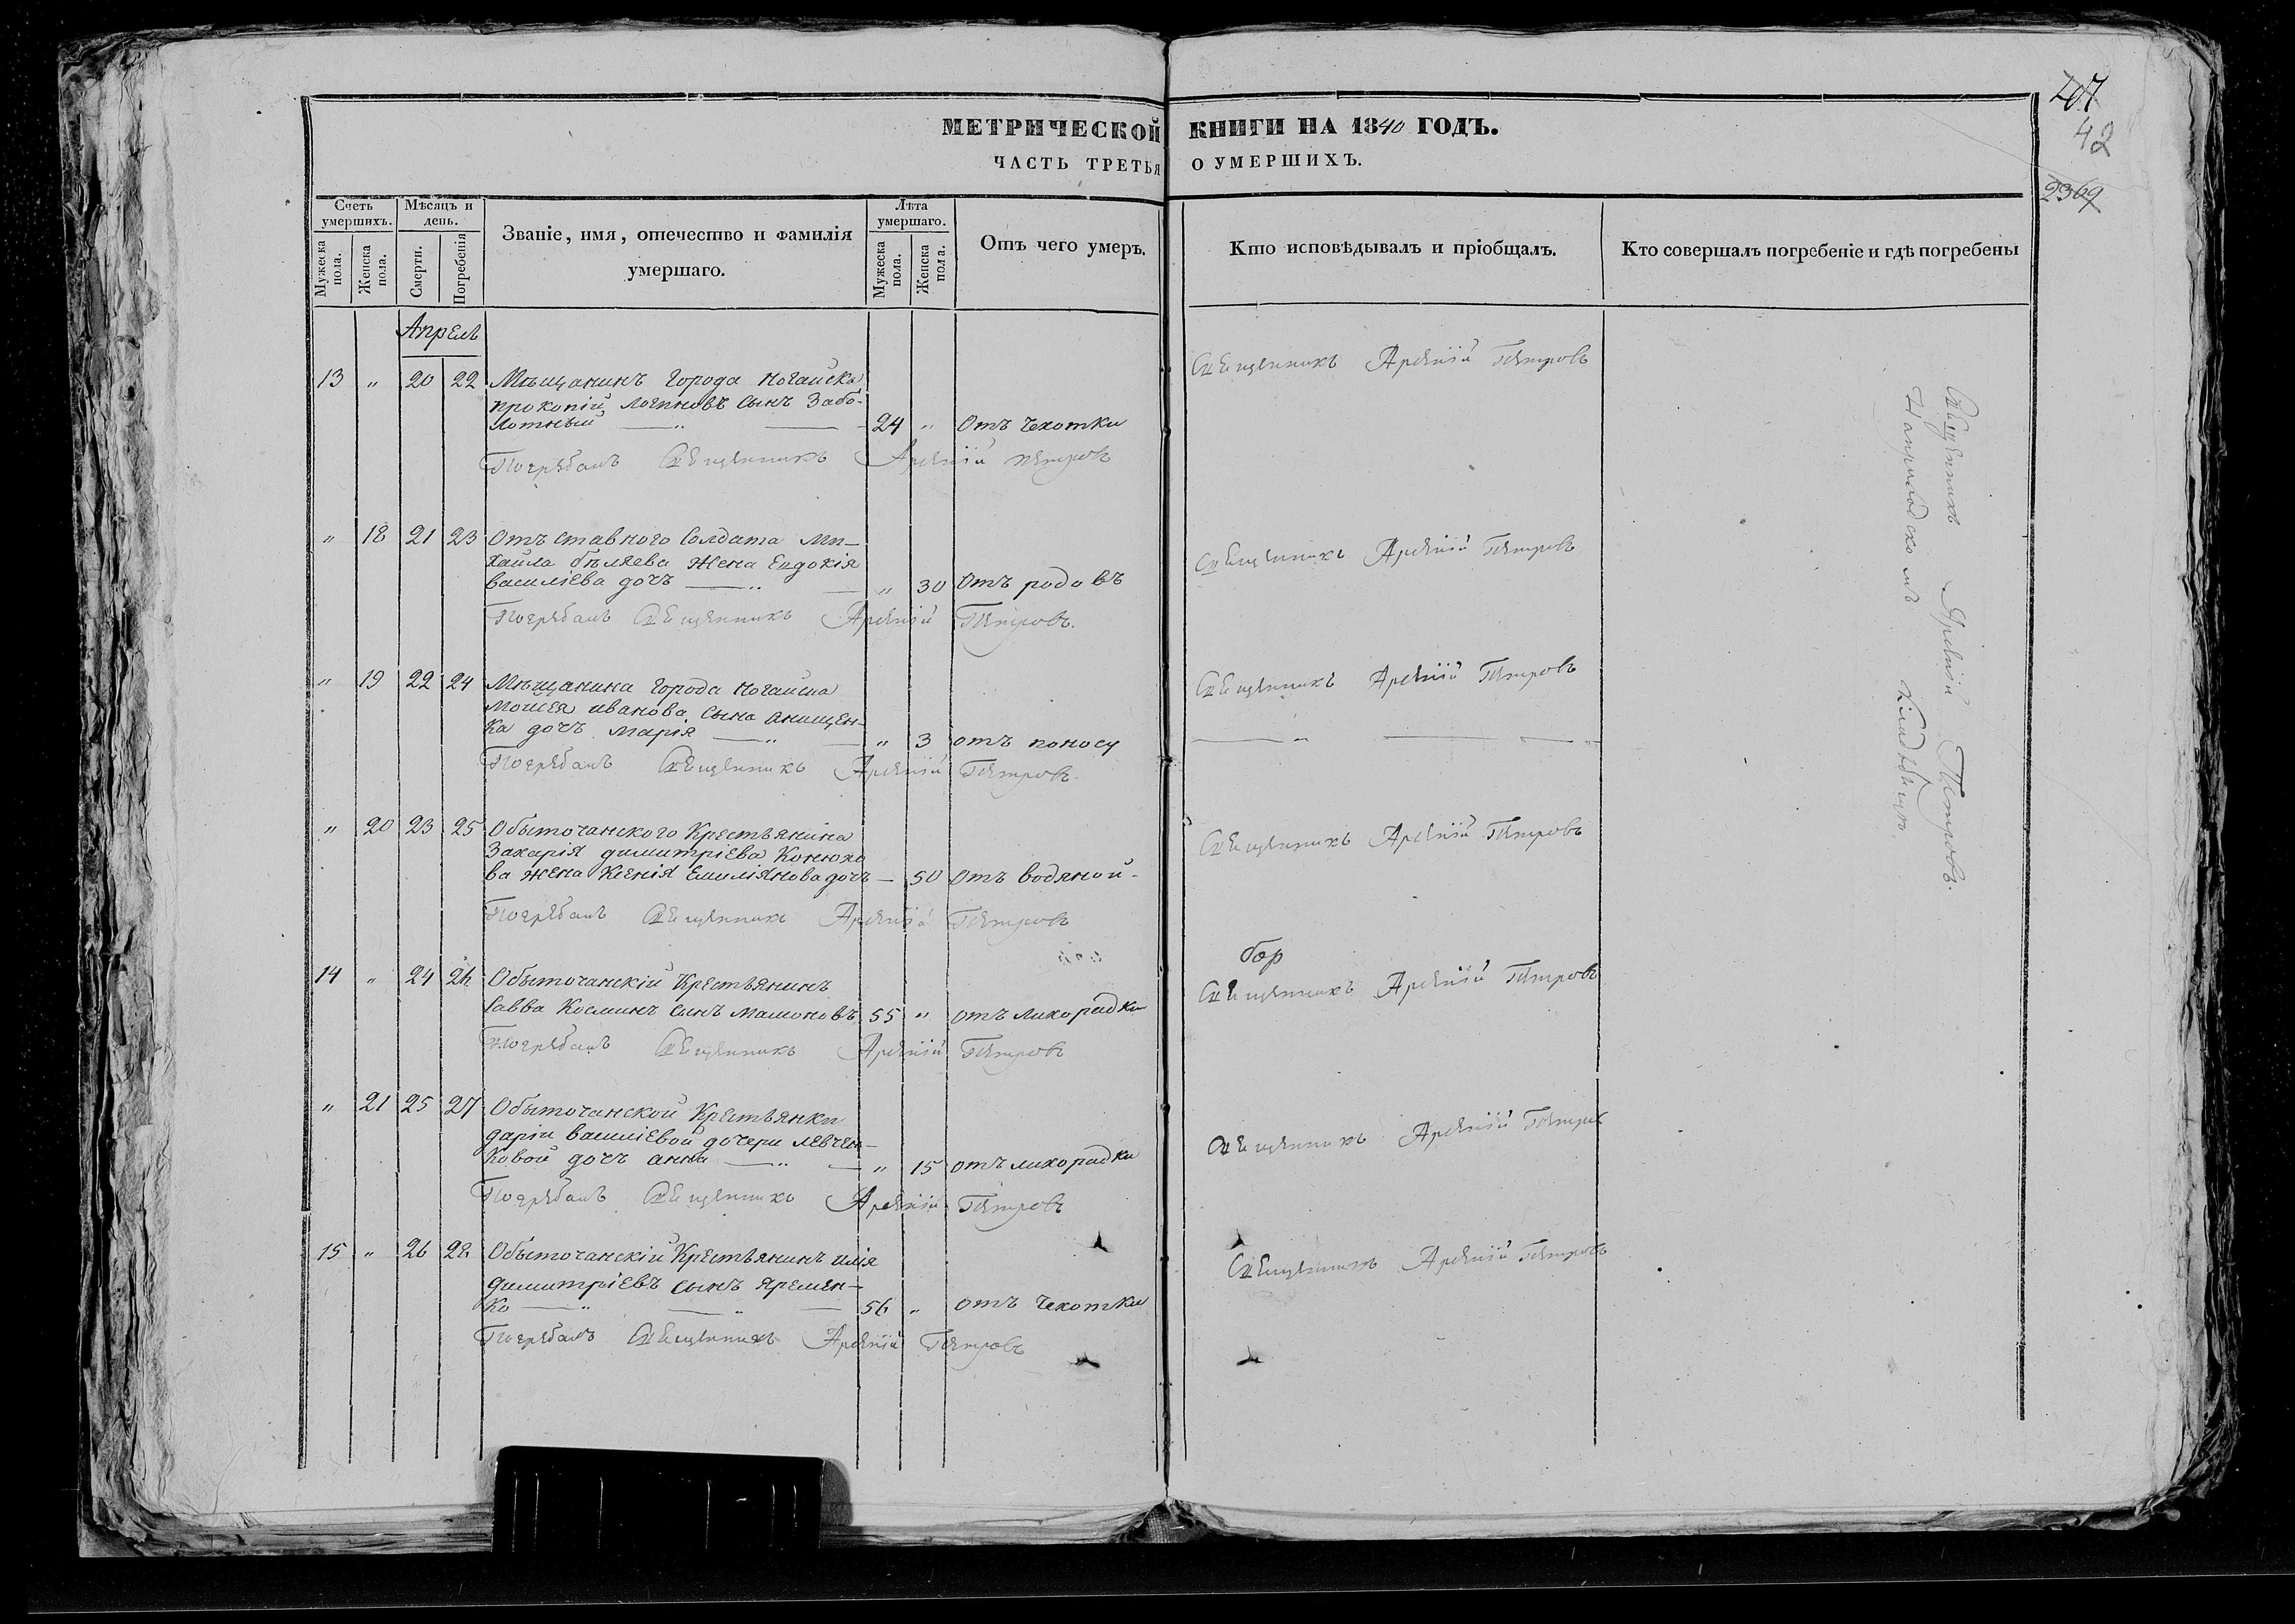 207
42
2369
МЕТРИЧЕСКОЙ КНИГИ НА 1840 ГОДЪ.
ЧАСТЬ ТРЕТЬЯ О УМЕРШИХЪ.
Счетъ умершихъ.
Мужеска пола.
Женска пола.
Мѣсяцъ и день.
Смерти.
Погребенія
Званіе, имя, отечество и фамилія умершаго.
Лѣта умершаго.
Мужеска пола.
Женска пола.
Отъ чего умеръ.
Кто исповѣдывалъ и пріобщалъ.
Кто совершалъ погребеніе и гдѣ погребены
Апрель
13 " 20 22 Мѣщанинъ города Ногайска Священникъ Арсеній Петровъ
прокопій Логиновъ Сынъ Забо-
лотный 24 " Отъ чехотки
Погребалъ Священникъ Арсеній петровъ
" 18 21 23 Отъставного Солдата Ми-
хайла бѣляева жена Евдокія Священникъ Арсеній Петровъ
василіева дочь " 30 Отъ родовъ
Погребалъ Священникъ Арсеній Петровъ.
" 19 22 24 Мѣщанина города Ногайска Священникъ Арсеній Петровъ
Мойсея иванова Сына анищен-
ка дочь Марія " 3 отъ поносу
Погребалъ Священникъ Арсеній Петровъ.
" 20 23 25 Обыточанского Крестьянина Священникъ Арсеній Петровъ
Захарія димитріева Конюхо
ва жена Ксенія Емиліянова дочь — 50 отъ водяной
Погребалъ Священникъ Арсеній Петровъ
14 " 24 26 Обыточанскій Крестьянинъ Священникъ Арсеній Петровъ
Савва Косминъ Сынъ Мамоновъ 55 " отъ лихорадки
Погребалъ Священникъ Арсеній Петровъ
" 21 25 27 Обыточанской Крестьянки
даріи василіевой дочери левчен- Священникъ Арсеній Петров
ковой дочь анна " 15 отъ лихорадки
Погребалъ Священникъ Арсеній Петровъ
15 " 26 28 Обыточанскій Крестьянинъ илія Священникъ Арсеній Петровъ
димитріевъ сынъ яремен-
ко 56 " отъ чехотки
Погребалъ Священникъ Арсеній Петровъ
Священникъ Арсеній Петровъ.
Наприходскомъ Кладбищѣ